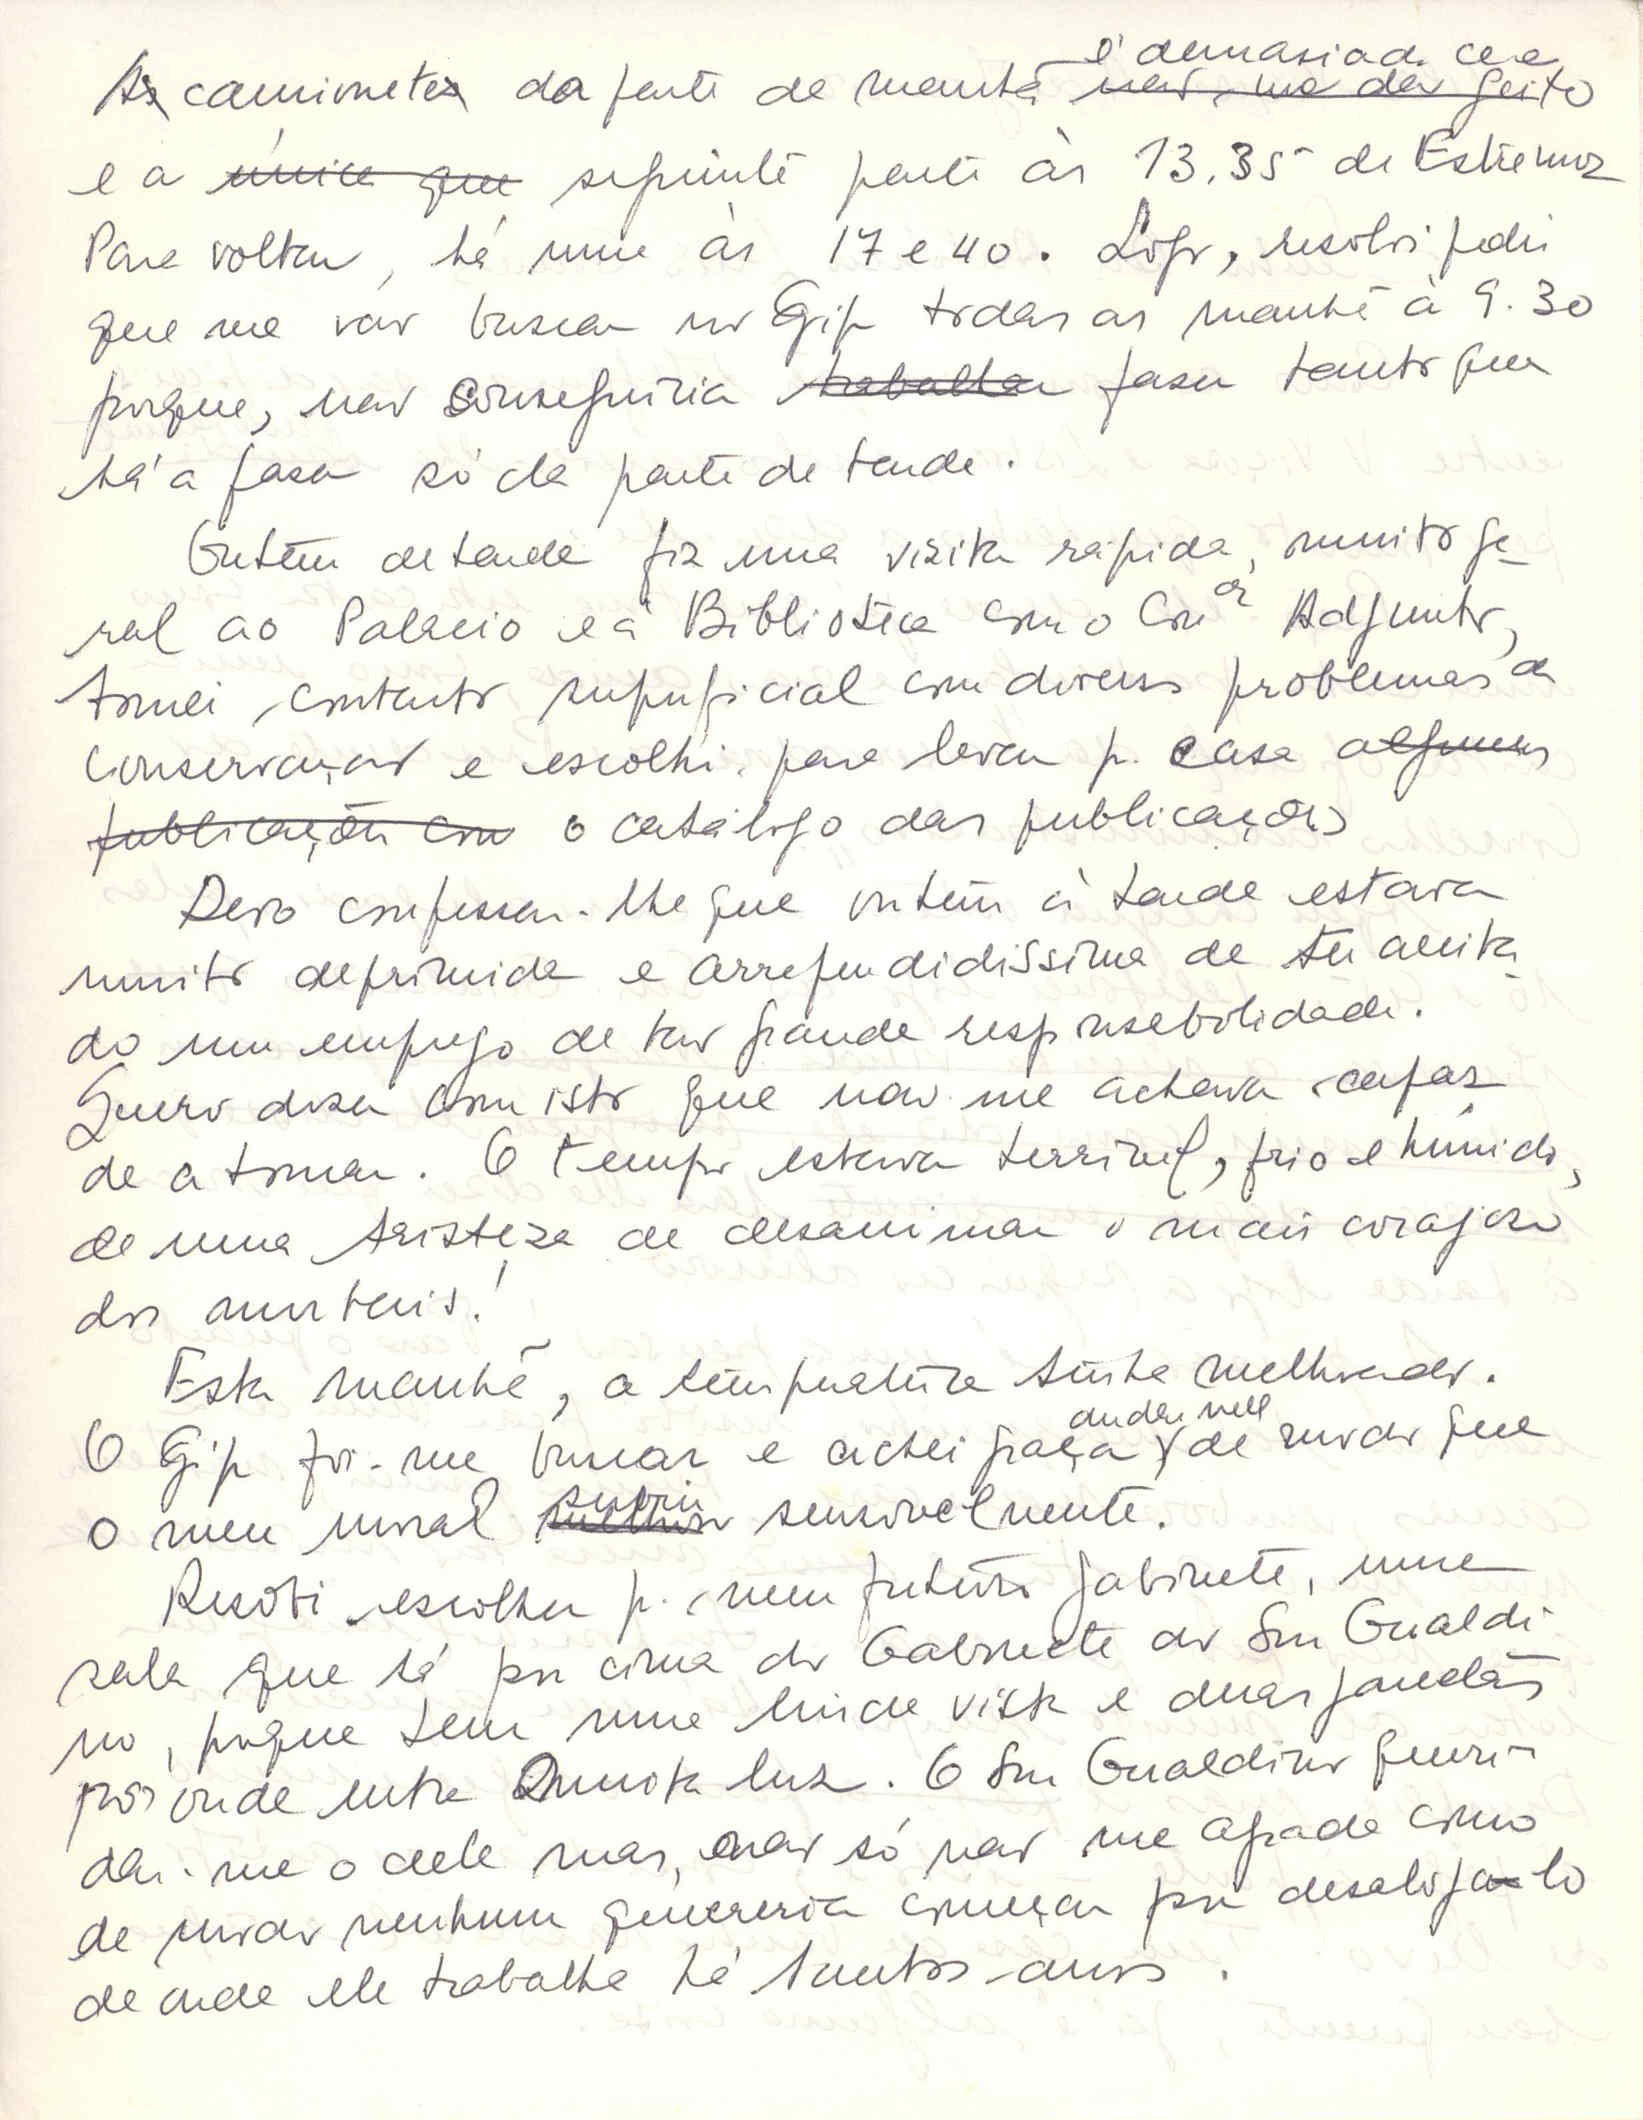 é demasiado cedo
As camionetes da parte de manhã não me dão geito
e a única que seguinte parte às 13.35 de Estremoz
Para voltar, há uma às 17 e 40. Logo, resolvi pedir
que me vão buscar no Gip todas as manhã à 9.30
porque, não conseguiria trabalhar fazer tanto que
há a fazer só da parte de tarde.
Ontem de tarde fiz uma visita rápida, muito ge-
ral ao Palacio e à Biblioteca com o Con.or Adjunto,
tomei contacto superficial com diversos problemas de
conservação e escolhi para levar p. casa algumas
publicações com o catálogo das publicações
Devo confessar-lhe que ontem à tarde estava
muito deprimida e arrependidissima de ter aceita-
do um emprego de tão grande responsabilidade.
Quero dizer com isto que não me achava capaz
de a tomar. O tempo estava terrivel, frio e húmido,
de uma tristeza de desanimar o mais corajoso
dos mortais!
Esta manhã, a temperatura tinha melhorado.
andar nele
O Gip foi-me buscar e achei graça de modo que
subiu
o meu moral melhorou sensivelmente.
Resolvi escolher p. meu futuro gabinete, uma
sala que há por cima do Gabinete do Snr Gualdi-
no, porque tem uma linda vista e duas janelas
por onde entra muita luz. O Snr Gualdino queria
dar-me o dele mas, não só não me agrada como
de modo nenhum quereria começar por desaloja-lo
de onde ele trabalha há tantos anos.